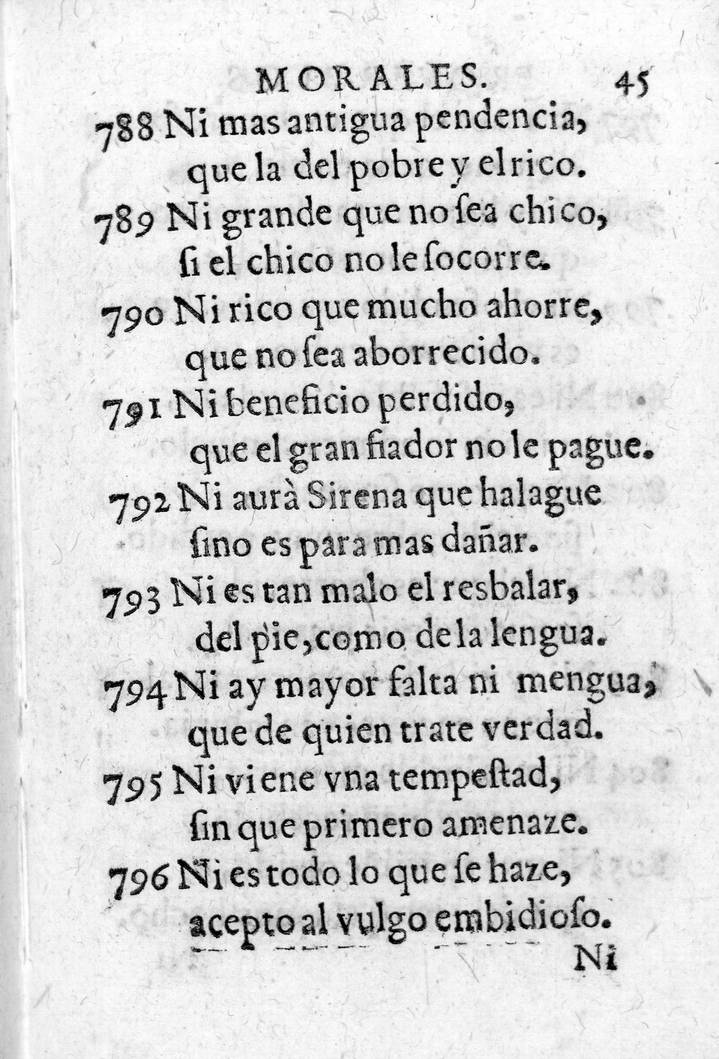 MORALES. 45
788 Ni mas antigua pendencia,
que la del pobre y el rico.
789 Ni grande que no ſea chico,
ſi el chico no le ſocorre.
790 Ni rico que mucho ahorre,
que no ſea aborrecido.
791 Ni beneficio perdido,
que el gran fiador no le pague.
792 Ni aurà Sirena que halague
ſino es para mas dañar.
793 Ni es tan malo el resbalar,
del pie, como de la lengua.
794 Ni ay mayor falta ni mengua,
que de quien trate verdad.
795 Ni viene vna tempeſtad,
ſin que primero amenaze.
796 Ni es todo lo que ſe haze,
acepto al vulgo embidioſo.
Ni